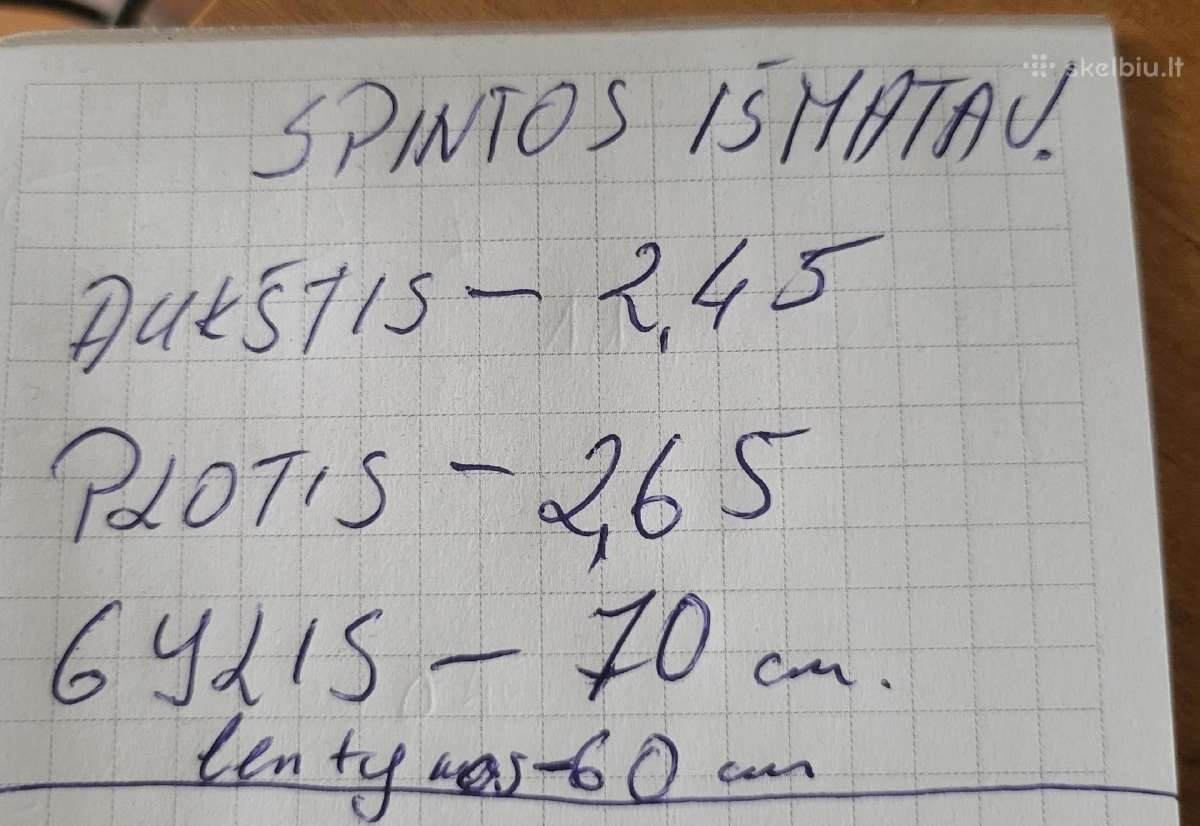 skelbiu.lt
SPINTOS IŠMATAV.
AUKŠTIS - 2,45
PLOTIS - 2,65
GYLIS - 70 cm.
lentynos - 60 cm